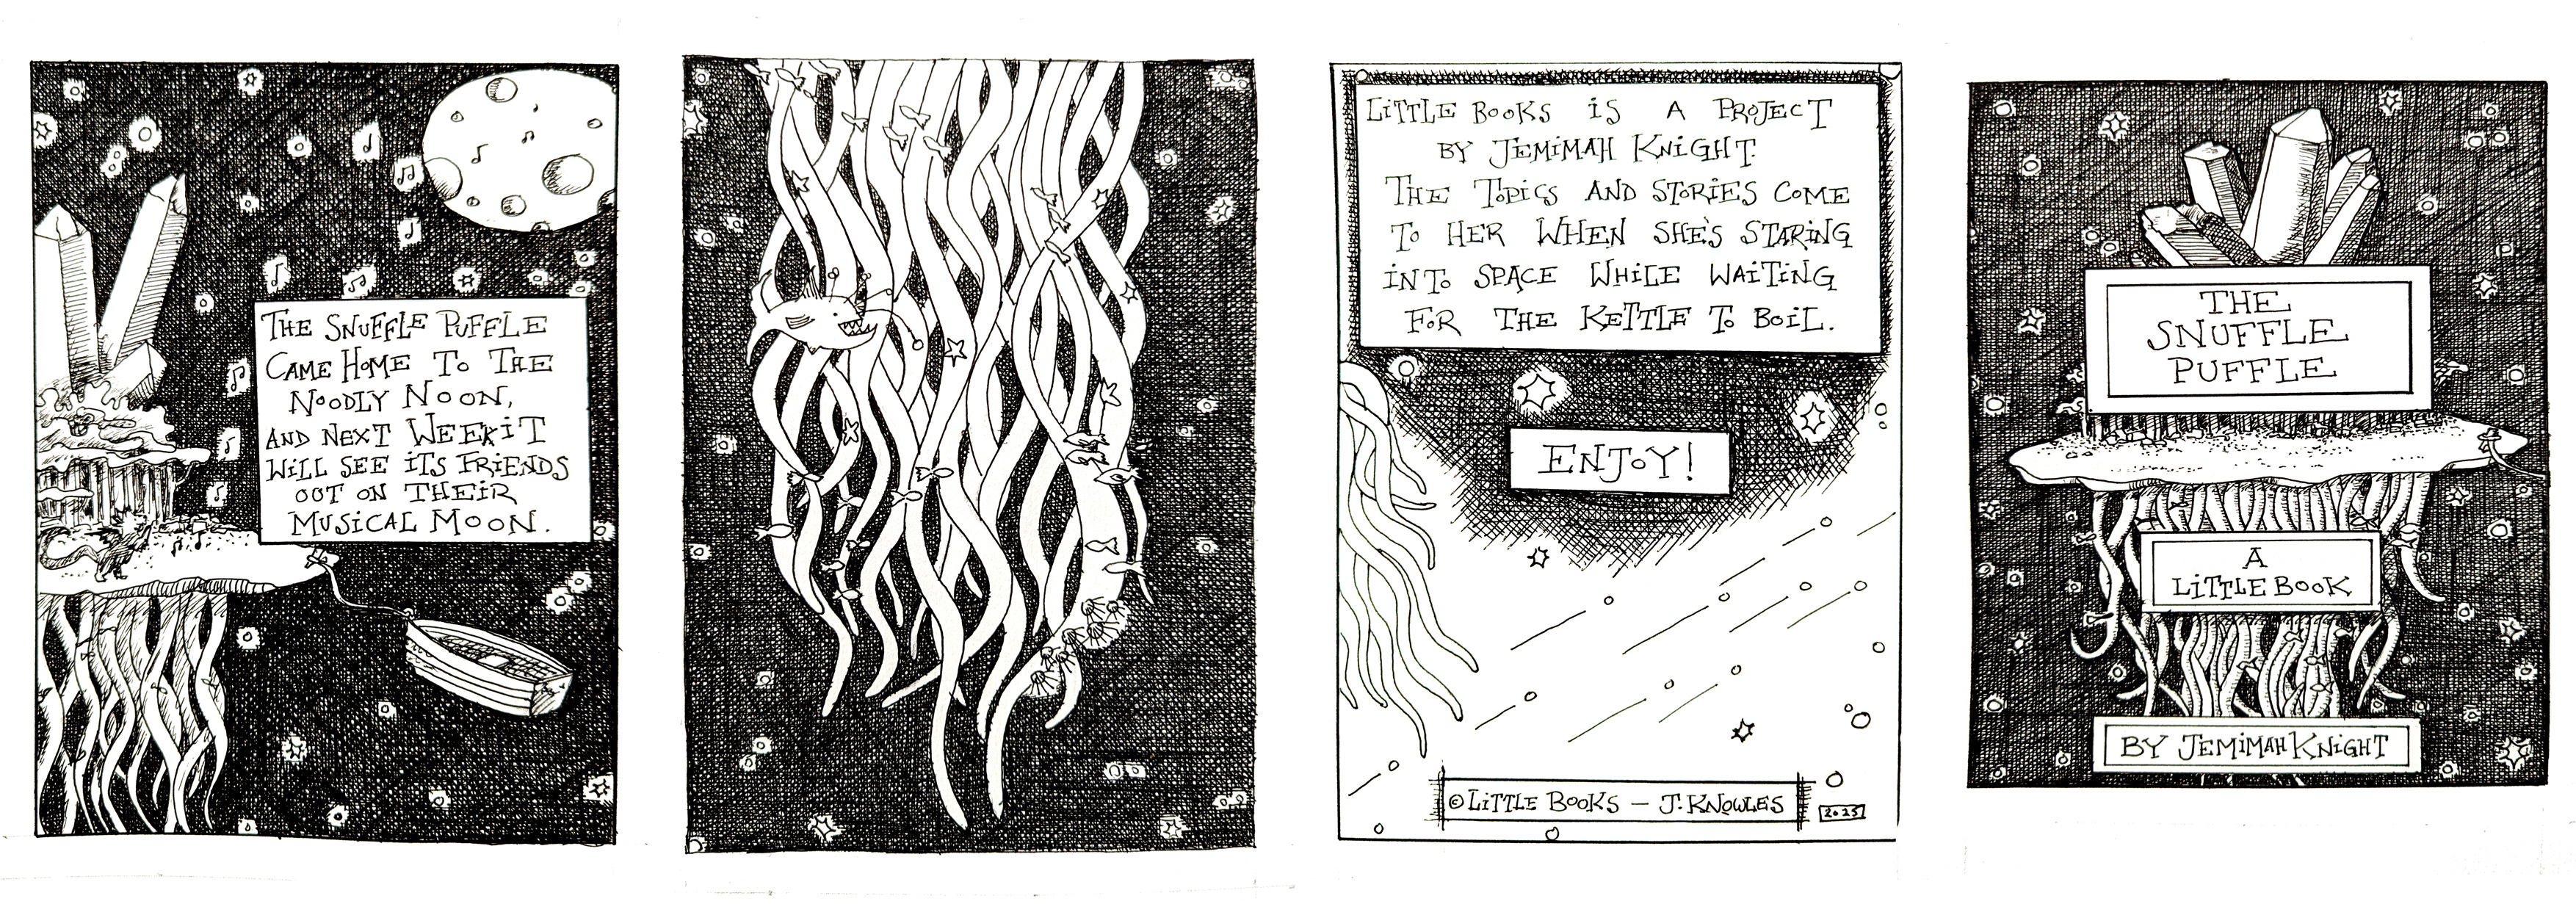 THE SNUFFLE PUFFLE
CAME HOME TO THE
NOODLY NOON,
AND NEXT WEEK IT
WILL SEE ITS FRIENDS
OUT ON THEIR
MUSICAL MOON.
LITTLE BOOKS IS A PROJECT
BY JEMIMAH KNIGHT.
THE TOPICS AND STORIES COME
TO HER WHEN SHE'S STARING
INTO SPACE WHILE WAITING
FOR THE KETTLE TO BOIL.
ENJOY!
© LITTLE BOOKS – J. KNOWLES
2025
THE
SNUFFLE
PUFFLE
A
LITTLE BOOK
BY JEMIMAH KNIGHT